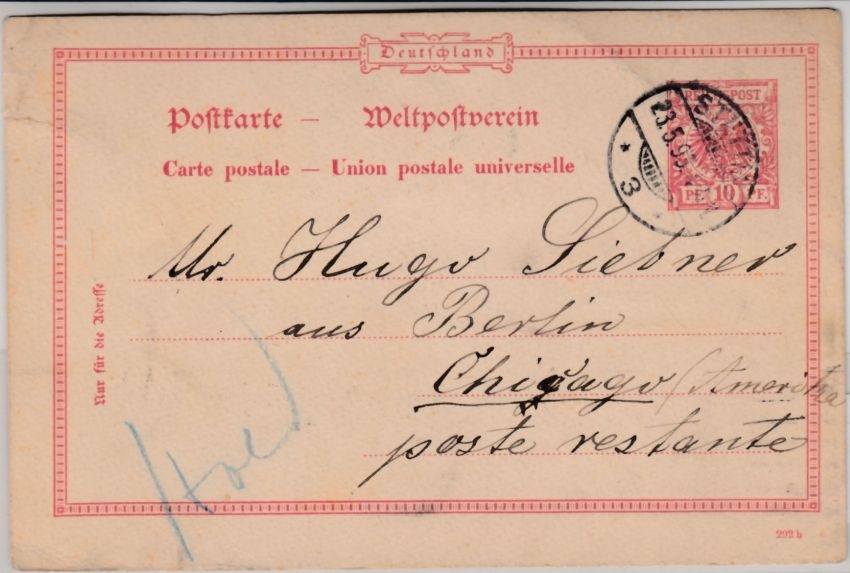 Deutschland
Postkarte — Weltpostverein
Carte postale — Union postale universelle
REICHSPOST
PF. 10 PF.
STETTIN
23.5.93
* 3 *
Mr. Hugo Siebner
aus Berlin
Chicago (Amerika
poste restante
Nur für die Adresse
Hold
292 b